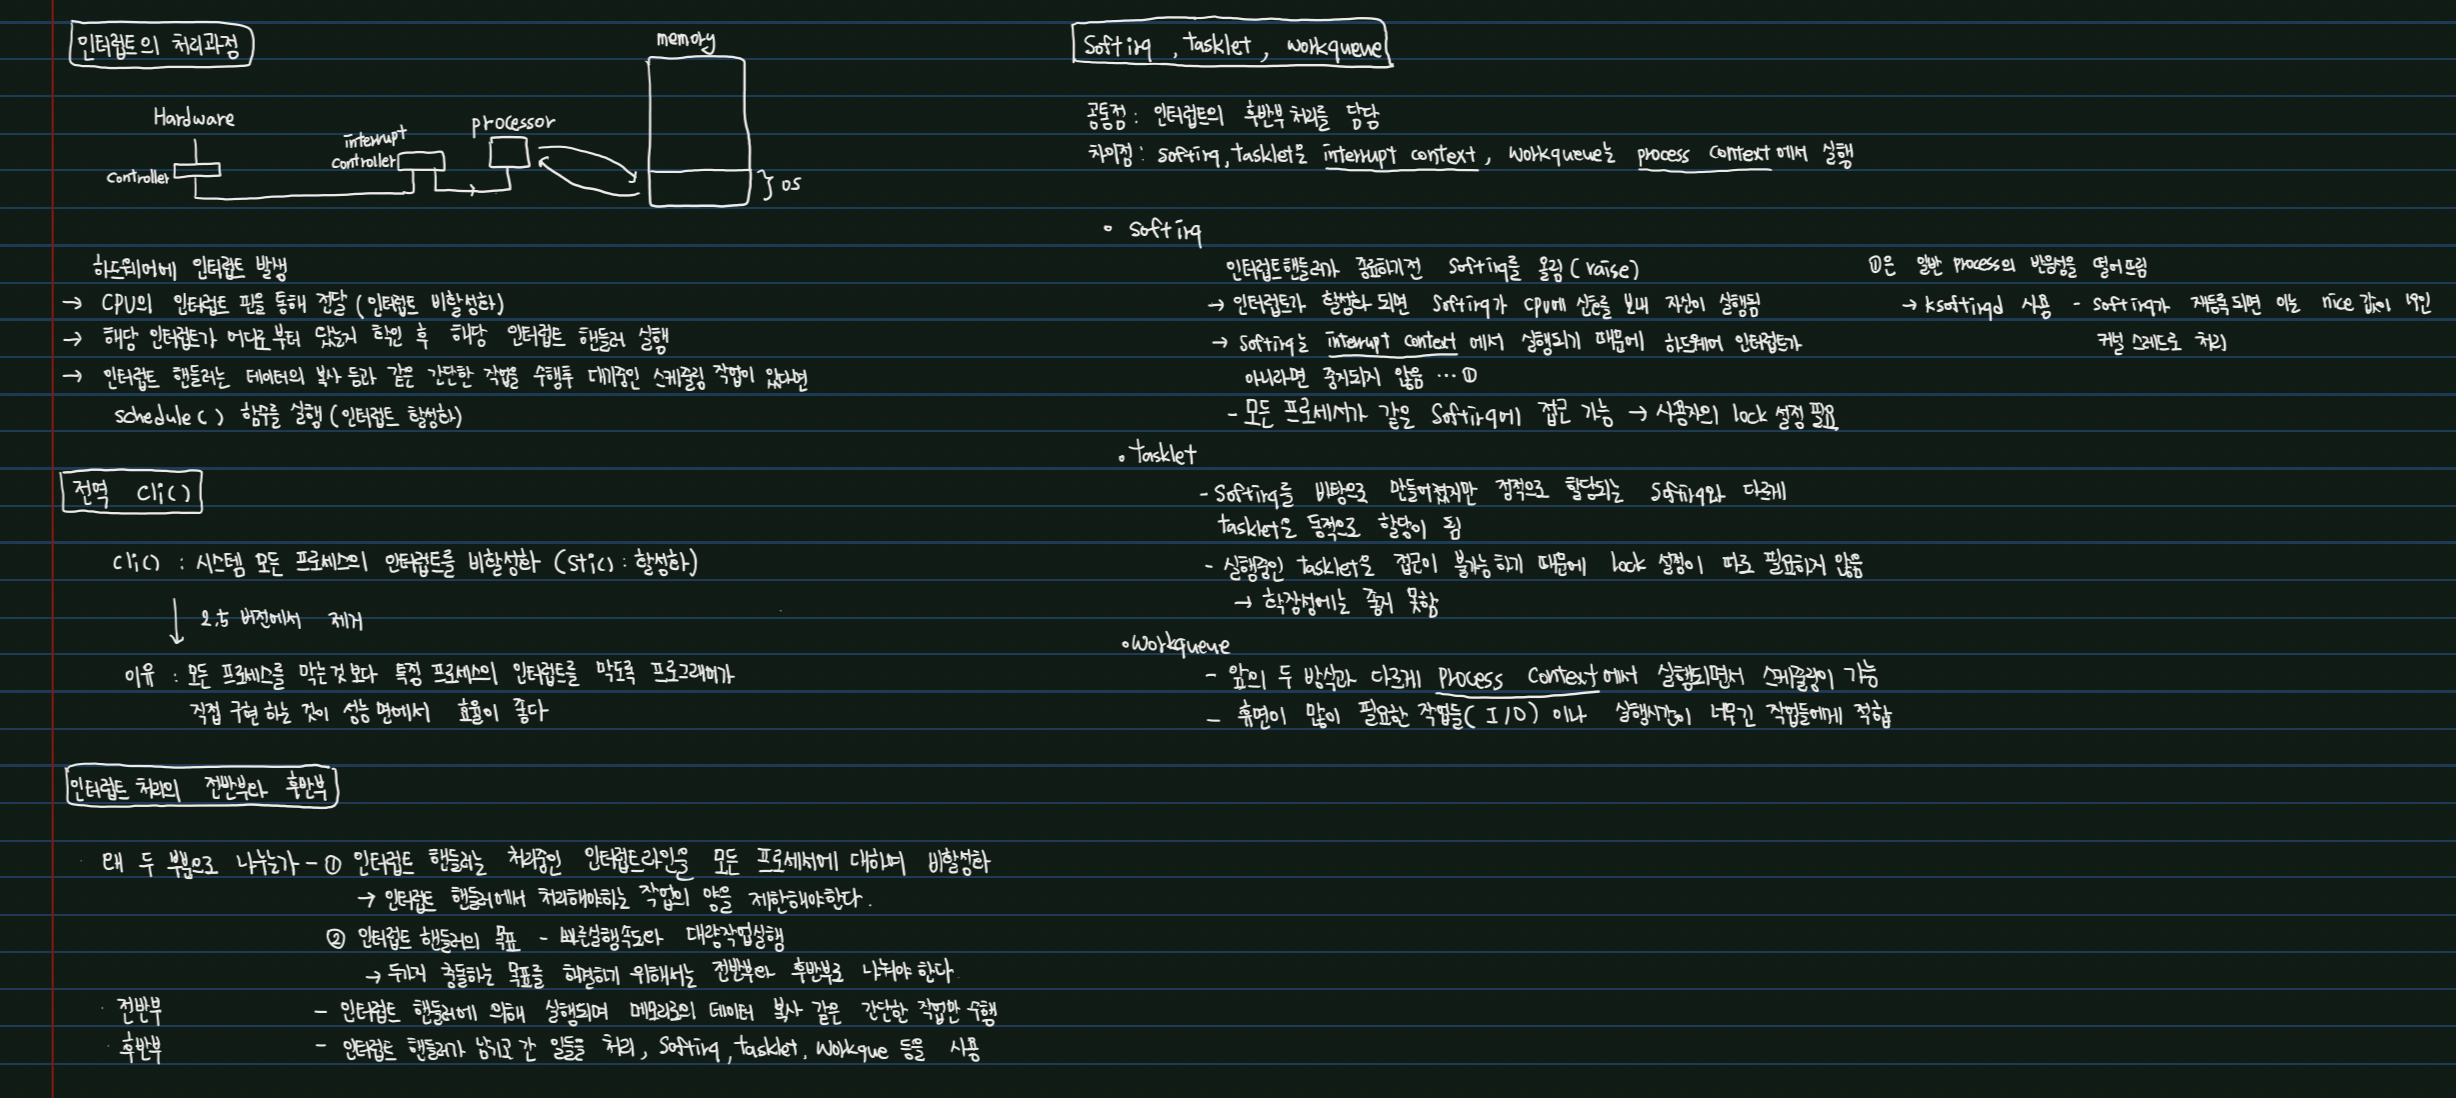 인터럽트의 처리과정
memory
Hardware
interrupt
controller
processor
controller
OS
하드웨어에 인터럽트 발생
→ CPU의 인터럽트 핀을 통해 전달 (인터럽트 비활성화)
→ 해당 인터럽트가 어디로부터 왔는지 확인 후 해당 인터럽트 핸들러 실행
→ 인터럽트 핸들러는 데이터의 복사 등과 같은 간단한 작업을 수행후 대기중인 스케줄링 작업이 있다면
schedule() 함수를 실행 (인터럽트 활성화)
전역 cli()
cli() : 시스템 모든 프로세스의 인터럽트를 비활성화 (sti() : 활성화)
↓ 2.5 버전에서 제거
이유 : 모든 프로세스를 막는것 보다 특정 프로세스의 인터럽트를 막도록 프로그래머가
직접 구현 하는 것이 성능 면에서 효율이 좋다
인터럽트 처리의 전반부와 후반부
왜 두 부분으로 나누는가 - ① 인터럽트 핸들러는 처리중인 인터럽트라인을 모든 프로세서에 대하여 비활성화
→ 인터럽트 핸들러에서 처리해야하는 작업의 양을 제한해야한다.
② 인터럽트 핸들러의 목표 - 빠른실행속도와 대량작업실행
→ 두가지 충돌하는 목표를 해결하기 위해서는 전반부와 후반부로 나눠야 한다.
전반부 - 인터럽트 핸들러에 의해 실행되며 메모리로의 데이터 복사 같은 간단한 작업만 수행
후반부 - 인터럽트 핸들러가 남기고 간 일들을 처리, Softirq, tasklet, workque 등을 사용
Softirq , tasklet , workqueue
공통점 : 인터럽트의 후반부 처리를 담당
차이점 : softirq, tasklet은 interrupt context, workqueue는 process context에서 실행
• softirq
인터럽트핸들러가 종료하기전 softirq를 올림 (raise)
→ 인터럽트가 활성화 되면 softirq가 cpu에 신호를 보내 자신이 실행됨
→ softirq는 interrupt context 에서 실행되기 때문에 하드웨어 인터럽트가
아니라면 중지되지 않음 … ①
- 모든 프로세서가 같은 softirq에 접근 가능 → 사용자의 lock 설정 필요
①은 일반 process의 반응성을 떨어뜨림
→ ksoftirqd 사용 - softirq가 재등록되면 이는 nice 값이 19인
커널 스레드로 처리
• tasklet
- softirq를 바탕으로 만들어졌지만 정적으로 할당되는 softirq와 다르게
tasklet은 동적으로 할당이 됨
- 실행중인 tasklet은 접근이 불가능 하기 때문에 lock 설정이 따로 필요하지 않음
→ 확장성에는 좋지 못함
• workqueue
- 앞의 두 방식과 다르게 process context에서 실행되면서 스케줄링이 가능
- 휴면이 많이 필요한 작업들( I/O ) 이나 실행시간이 너무긴 작업들에게 적합